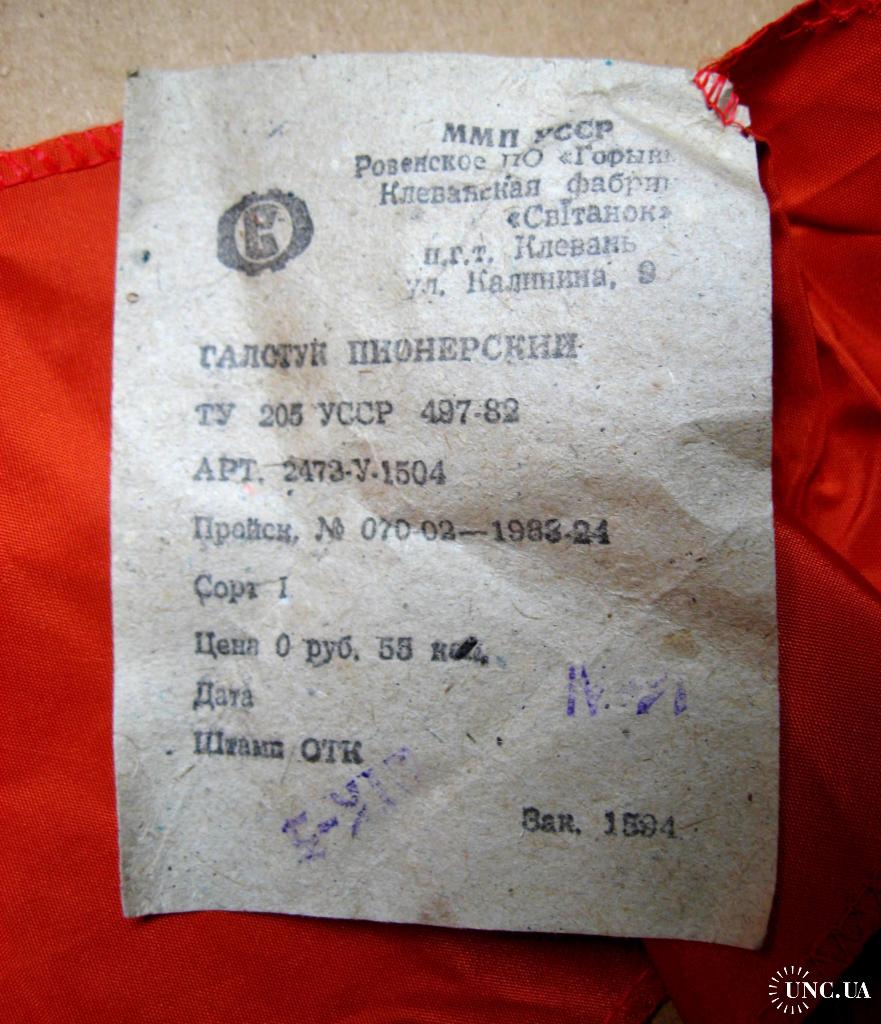 ММП УССР
Ровенское ПО «Горынь
Клеванская фабри
«Світанок»
п.г.т. Клевань
ул. Калинина, 9
К
ГАЛСТУК ПИОНЕРСКИЙ
ТУ 205 УССР 497-82
АРТ. 2473-У-1504
Прейск. № 070-02—1983-24
Сорт I
Цена 0 руб. 55 коп.
Дата
Штамп ОТК
Зак. 1594
UNC.UA